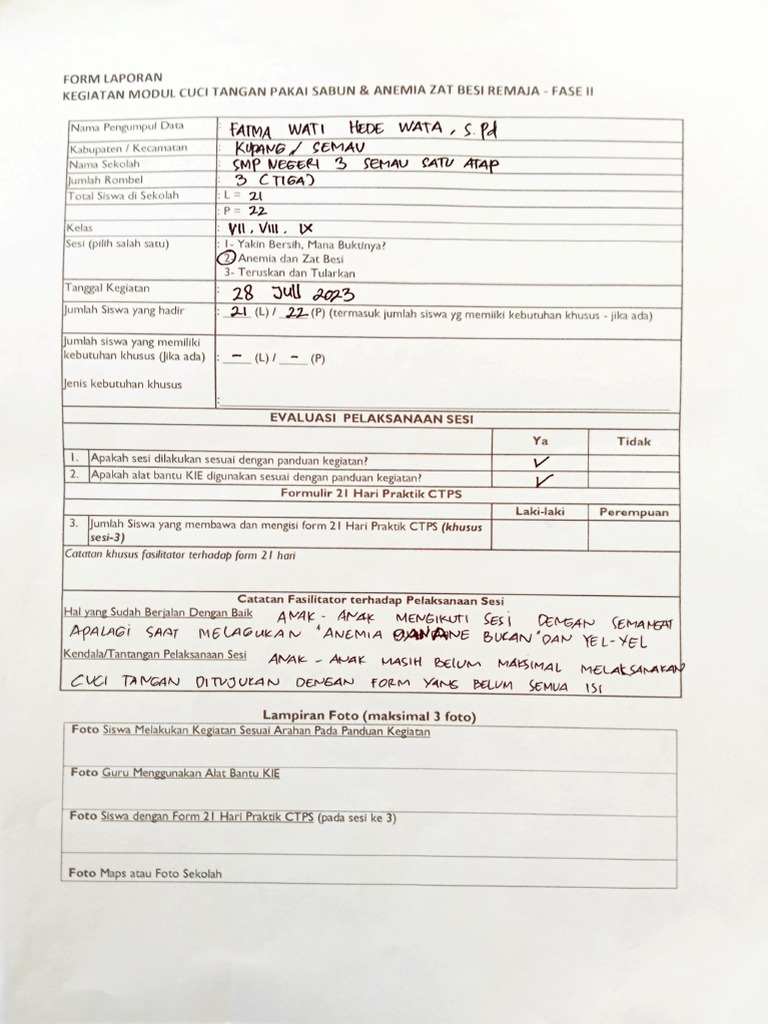 FORM LAPORAN
KEGIATAN MODUL CUCI TANGAN PAKAI SABUN & ANEMIA ZAT BESI REMAJA - FASE II
Nama Pengumpul Data : FATMA WATI HEDE WATA, S.Pd
Kabupaten / Kecamatan : KUPANG / SEMAU
Nama Sekolah : SMP NEGERI 3 SEMAU SATU ATAP
Jumlah Rombel : 3 (TIGA)
Total Siswa di Sekolah : L = 21
: P = 22
Kelas : VII, VIII, IX
Sesi (pilih salah satu) : 1- Yakin Bersih, Mana Buktinya?
2- Anemia dan Zat Besi
3- Teruskan dan Tularkan
Tanggal Kegiatan : 28 Juli 2023
Jumlah Siswa yang hadir : 21 (L) / 22 (P) (termasuk jumlah siswa yg memiiki kebutuhan khusus - jika ada)
Jumlah siswa yang memiliki
kebutuhan khusus (Jika ada) : - (L) / - (P)
Jenis kebutuhan khusus :
EVALUASI PELAKSANAAN SESI
Ya Tidak
1. Apakah sesi dilakukan sesuai dengan panduan kegiatan? ✓
2. Apakah alat bantu KIE digunakan sesuai dengan panduan kegiatan? ✓
Formulir 21 Hari Praktik CTPS
Laki-laki Perempuan
3. Jumlah Siswa yang membawa dan mengisi form 21 Hari Praktik CTPS (khusus
sesi-3)
Catatan khusus fasilitator terhadap form 21 hari
Catatan Fasilitator terhadap Pelaksanaan Sesi
Hal yang Sudah Berjalan Dengan Baik ANAK - ANAK MENGIKUTI SESI DENGAN SEMANGAT
APALAGI SAAT MELAGUKAN "ANEMIA BUKAN" DAN YEL-YEL
Kendala/Tantangan Pelaksanaan Sesi ANAK - ANAK MASIH BELUM MAKSIMAL MELAKSANAKAN
CUCI TANGAN DITUJUKAN DENGAN FORM YANG BELUM SEMUA ISI
Lampiran Foto (maksimal 3 foto)
Foto Siswa Melakukan Kegiatan Sesuai Arahan Pada Panduan Kegiatan
Foto Guru Menggunakan Alat Bantu KIE
Foto Siswa dengan Form 21 Hari Praktik CTPS (pada sesi ke 3)
Foto Maps atau Foto Sekolah